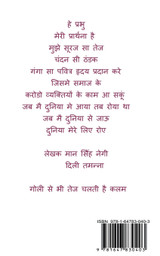 हे प्रभु
मेरी प्रार्थना है
मुझे सूरज सा तेज
चंदन सी ठंडक
गंगा सा पवित्र हृदय प्रदान करे
जिसमे समाज के
करोडो व्यक्तियों के काम आ सकूं
जब मै दुनिया मे आया तब रोया था
जब मै दुनिया से जाऊ
दुनिया मेरे लिए रोए
लेखक मान सिंह नेगी
दिली तमन्ना
गोली से भी तेज चलती है कलम
ISBN 978-1-64783-040-3
9 781647 830403